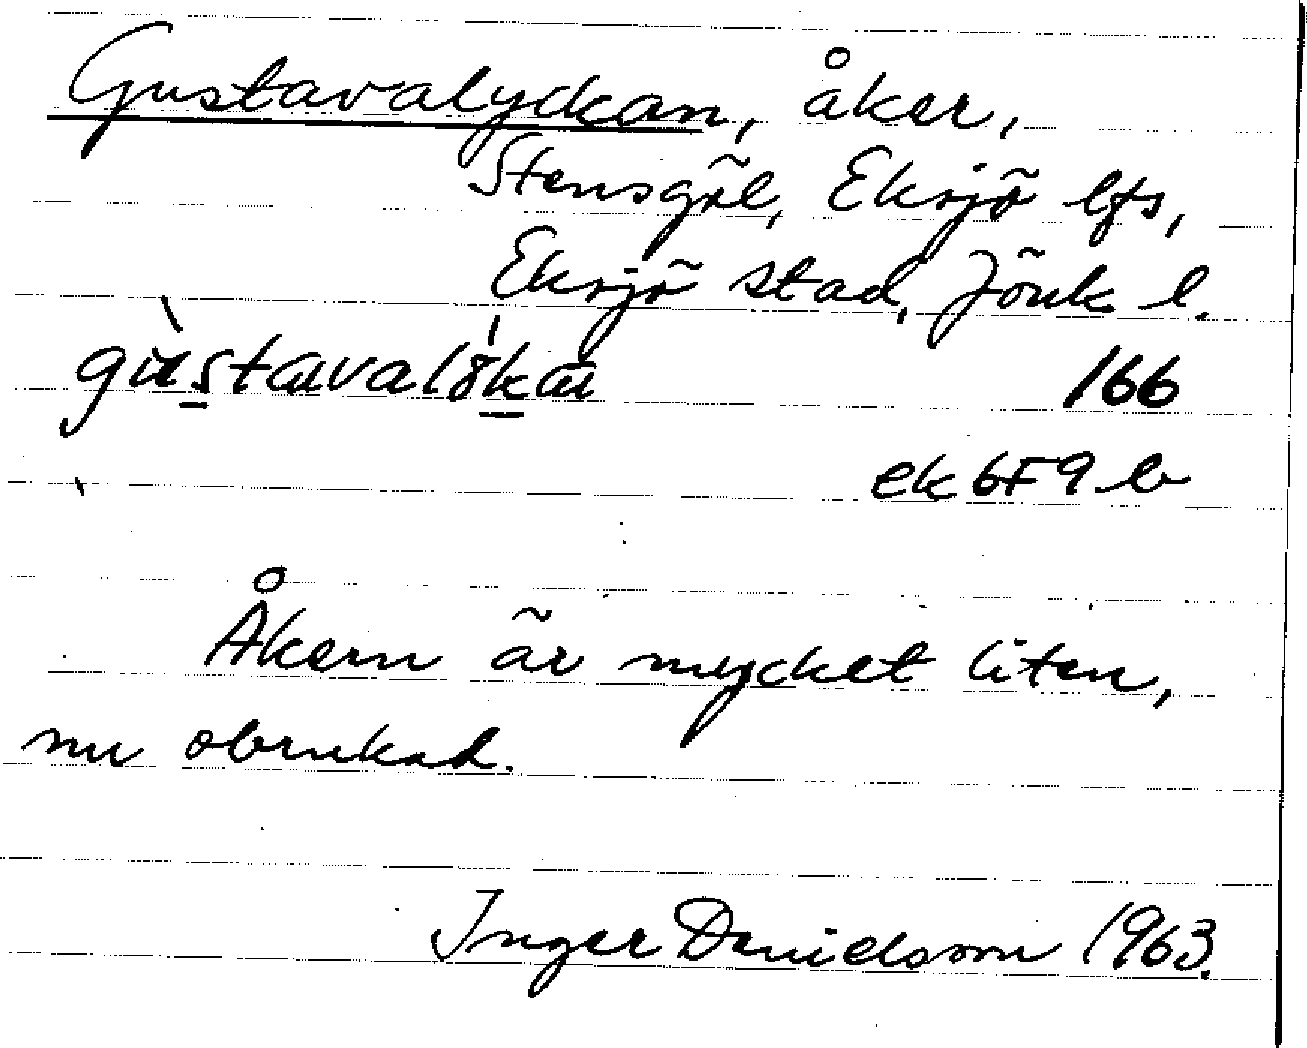 Gustavalyckan, åker,
Stensgöl, Eksjö lfs,
Eksjö stad, Jönk l.
166
ek 6F9 b
Åkern är mycket liten,
nu obrukad.
Inger Danielsson 1963.